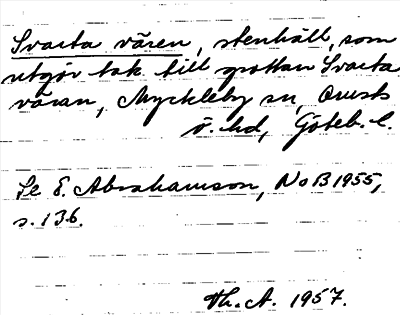 Svarta vären, stenhäll, som
utgör tak till grottan Svarta
våran, Myckleby sn, Orusts
v. hd, Göteb. l.
Se E. Abrahamson, NoB 1955,
s. 136.
Th. A. 1957.